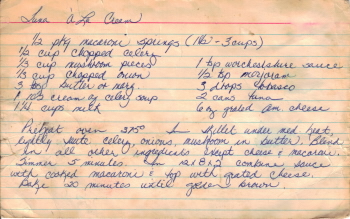 Tuna A La Cream
1/2 pkg macaroni springs (1 1/2 - 3 cups)
1/2 cup chopped celery
1/3 cup mushroom pieces
1/3 cup chopped onion
3 tbsp butter or marg.
1 can cream of celery soup
1 1/4 cups milk
1 tsp worchestshire sauce
1/2 tsp marjoram
3 drops tobasco
2 cans tuna
4 oz grated Am. cheese
Preheat oven 375° In skillet under med heat,
lightly saute celery, onions, mushroom in butter. Blend
in all other ingredients except cheese & macaroni.
Simmer 5 minutes. In 12x8x2 combine sauce
with cooked macaroni & top with grated cheese.
Bake 20 minutes until golden brown.